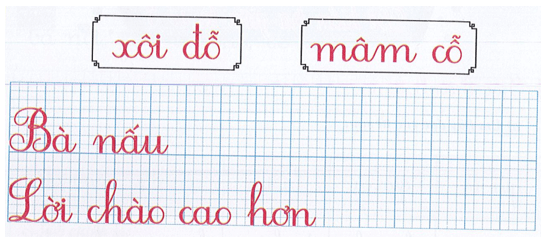 xôi đỗ
mâm cỗ
Bà nấu
Lời chào cao hơn